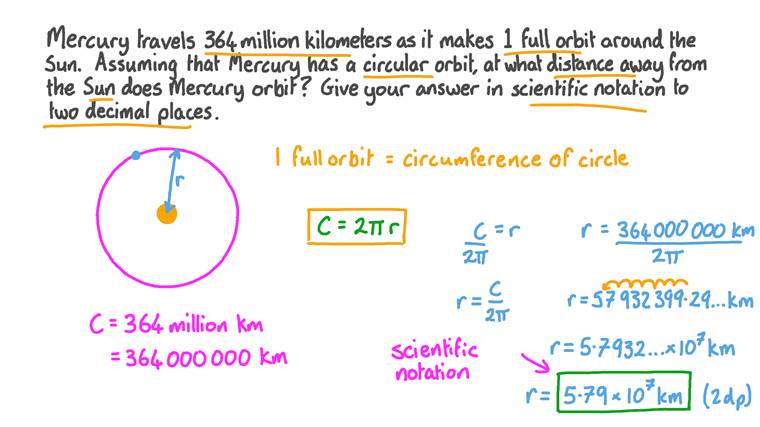 Mercury travels 364 million kilometers as it makes 1 full orbit around the
Sun. Assuming that Mercury has a circular orbit, at what distance away from
the Sun does Mercury orbit? Give your answer in scientific notation to
two decimal places.
1 full orbit = circumference of circle
r
C = 2πr
C/2π = r
r = C/2π
r = 364 000 000 km/2π
r = 57 932 399.29... km
C = 364 million km
= 364 000 000 km
scientific
notation
r = 5.7932... × 10⁷ km
r = 5.79 × 10⁷ km (2dp)